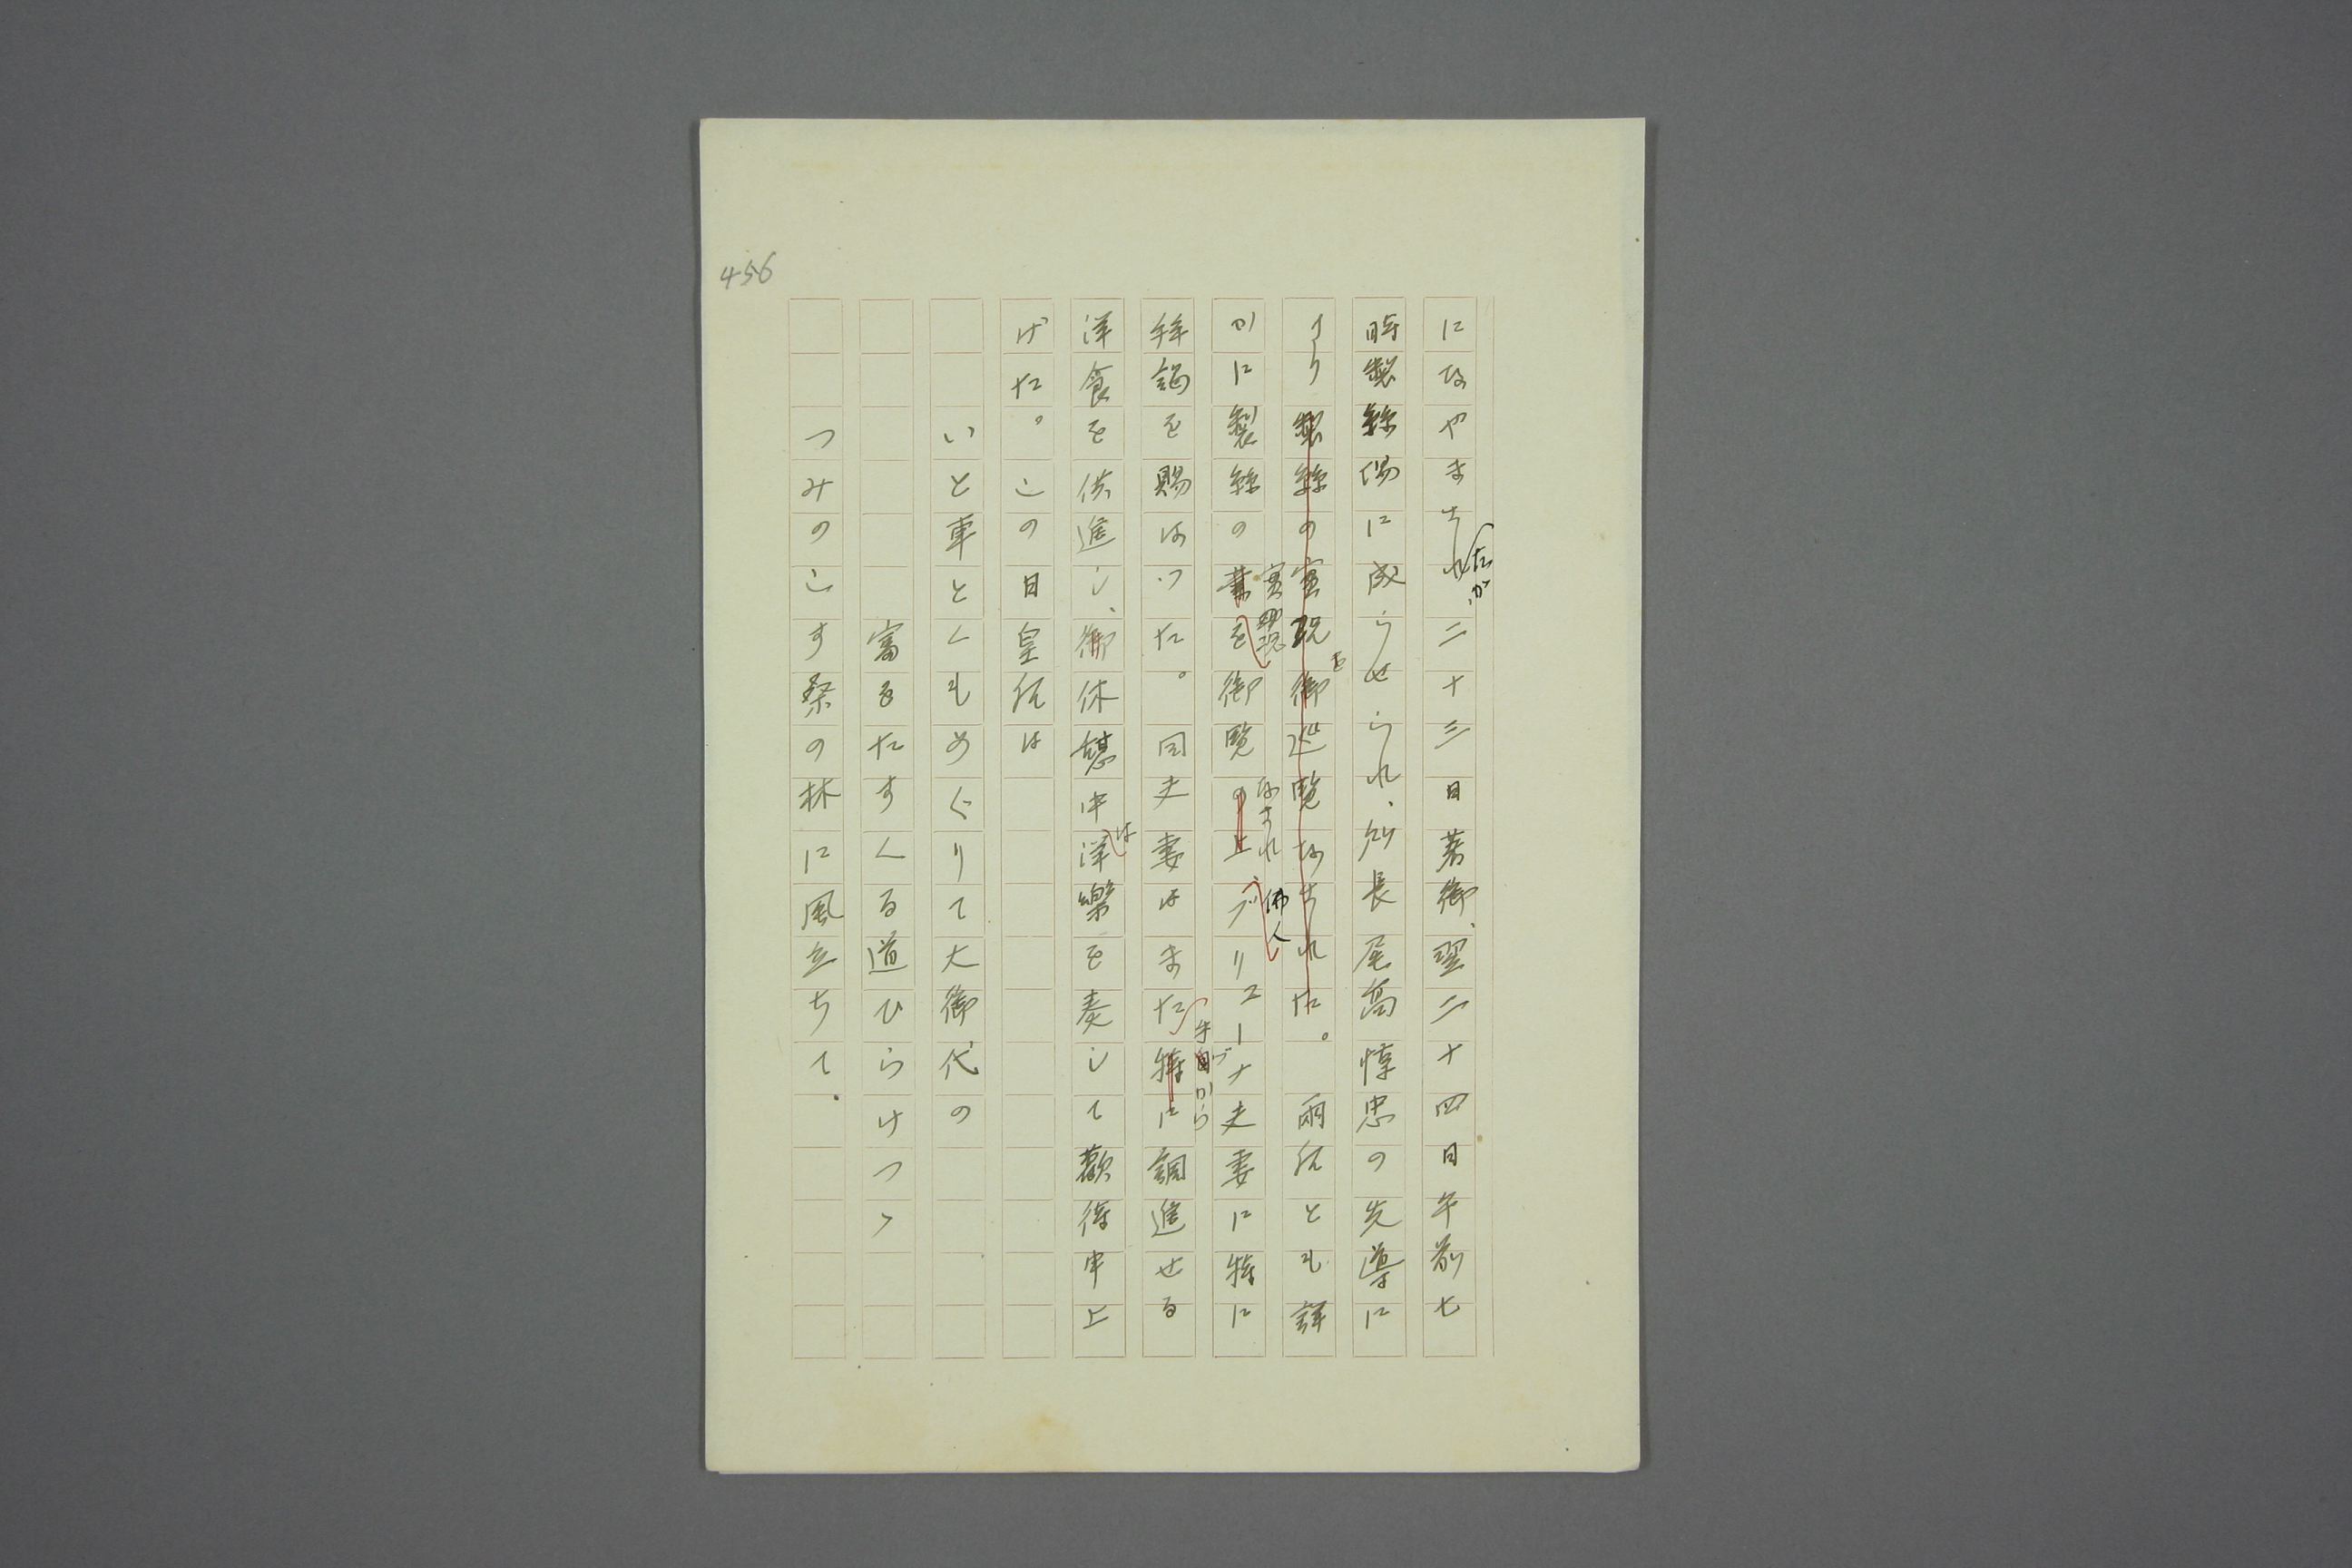 456
になやまされたが、二十三日着御、翌二十四日午前七
時製絲場に成らせられ、所長尾高惇忠の先導に
より製絲の實況を御巡覧なされた。両后とも詳
かに製絲の業を實地御覧なされ
の上、佛人ブリューナ夫妻に特に
拝謁を賜はつた。同夫妻はまた手づから
特に調進せる
洋食を供進し、御休憩中は洋樂を奏して歡待申上
げた。この日皇后は
いと車とくもめぐりて大御代の
富をたすくる道ひらけつゝ
つみのこす桑の林に風立ちて。